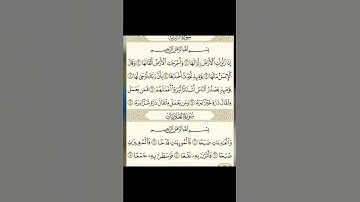 سورة الزلزلة
بسم الله الرحمن الرحيم
إذا زلزلت الأرض زلزالها ۝ وأخرجت الأرض أثقالها ۝ وقال
الإنسان ما لها ۝ يومئذ تحدث أخبارها ۝ بأن ربك أوحى لها ۝
يومئذ يصدر الناس أشتاتا ليروا أعمالهم ۝ فمن يعمل
مثقال ذرة خيرا يره ۝ ومن يعمل مثقال ذرة شرا يره ۝
سورة العاديات
بسم الله الرحمن الرحيم
والعاديات ضبحا ۝ فالموريات قدحا ۝ فالمغيرات
صبحا ۝ فأثرن به نقعا ۝ فوسطن به جمعا ۝